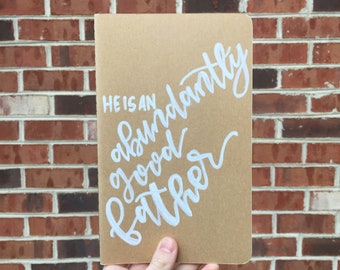 HE IS AN
abundantly
good
father